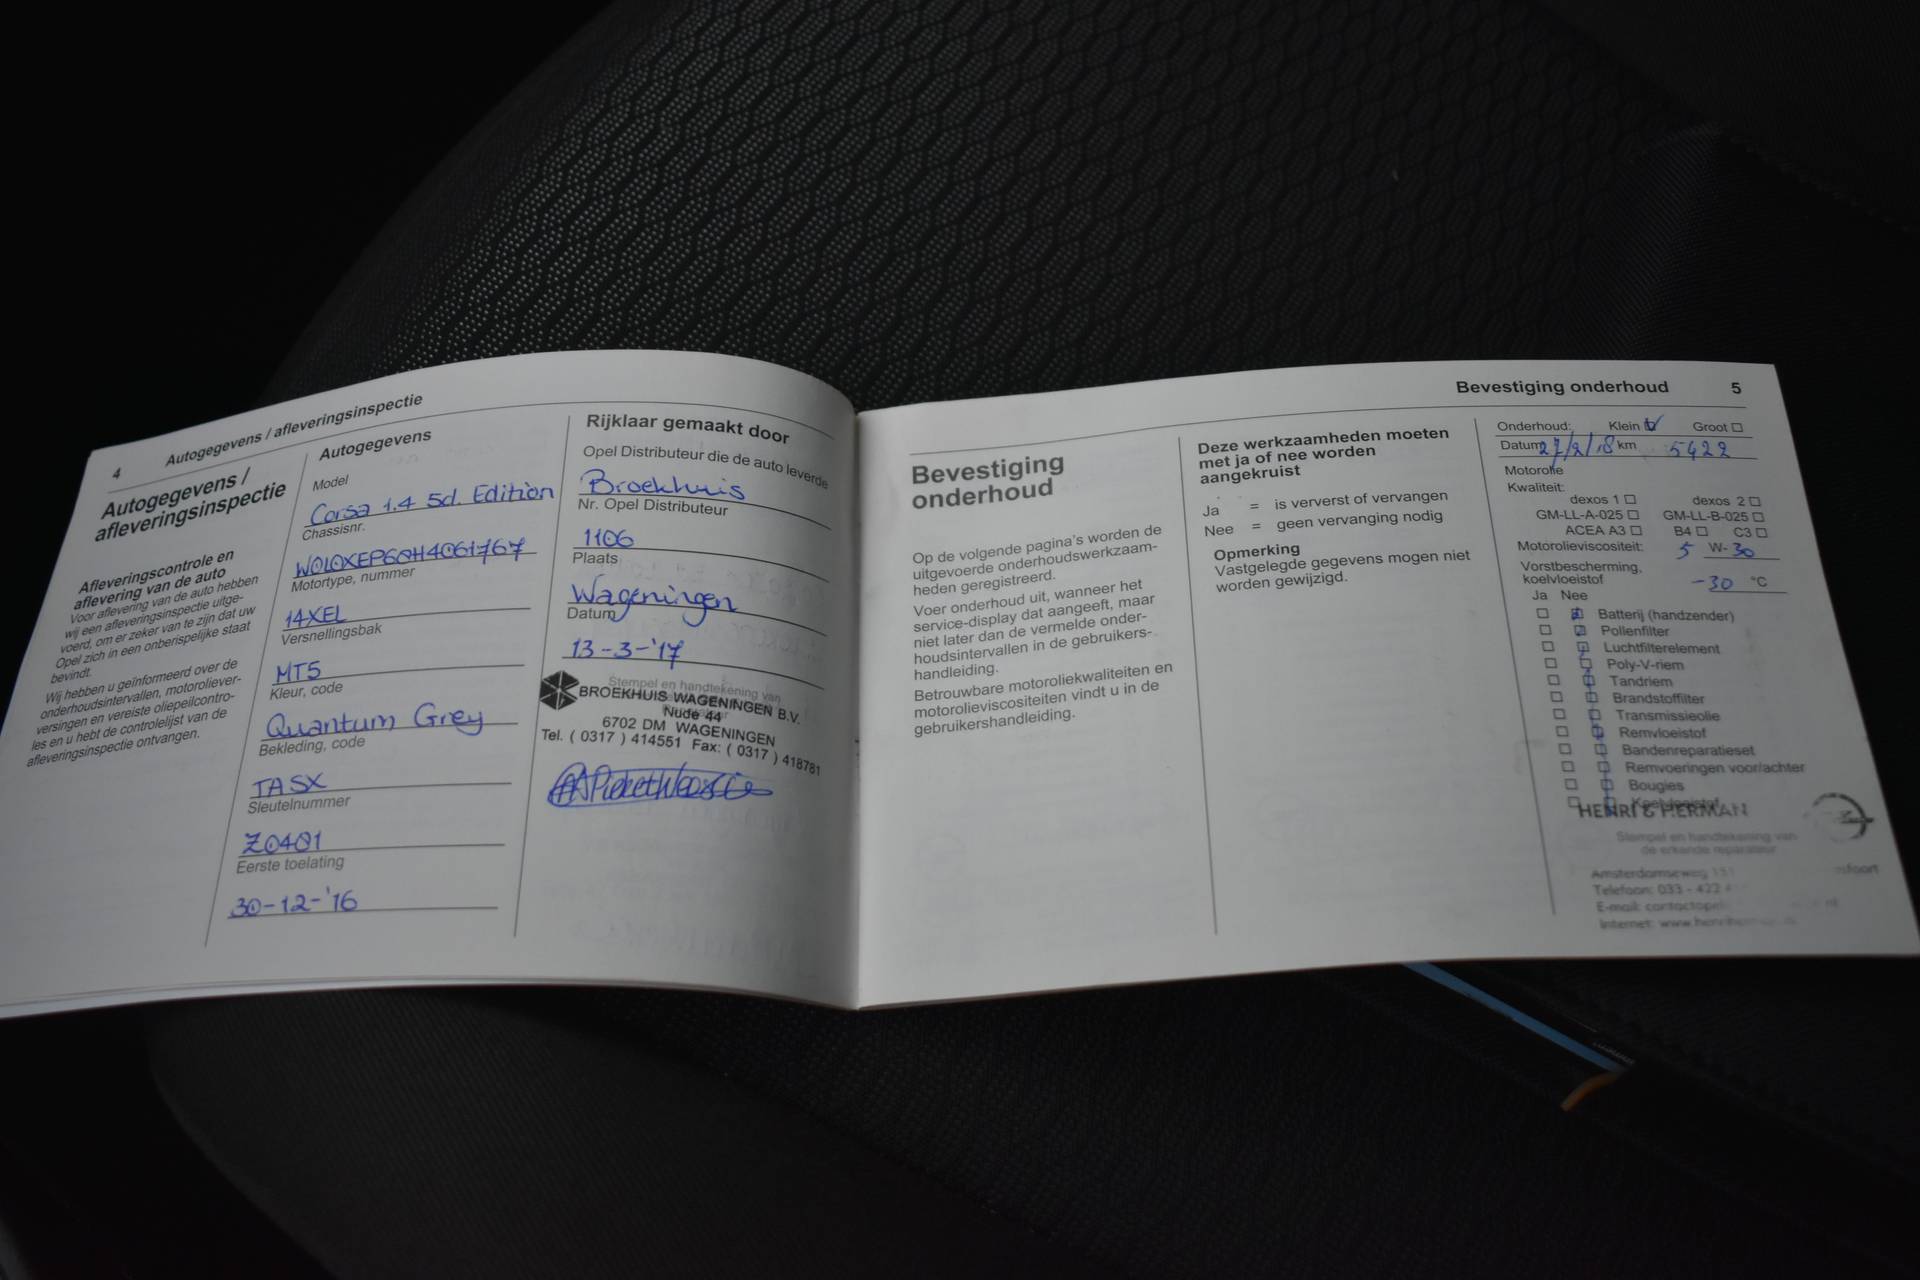 4 Autogegevens / afleveringsinspectie
Autogegevens /
afleveringsinspectie
Afleveringscontrole en
aflevering van de auto
Voor aflevering van de auto hebben
wij een afleveringsinspectie uitge-
voerd, om er zeker van te zijn dat uw
Opel zich in een onberispelijke staat
bevindt.
Wij hebben u geïnformeerd over de
onderhoudsintervallen, motoroliever-
versingen en vereiste oliepeilcontro-
les en u hebt de controlelijst van de
afleveringsinspectie ontvangen.
Autogegevens
Model
Corsa 1.4 5d. Edition
Chassisnr.
W0L0XEP68H4061767
Motortype, nummer
14XEL
Versnellingsbak
MT5
Kleur, code
Quantum Grey
Bekleding, code
TASX
Sleutelnummer
Z0401
Eerste toelating
30-12-'16
Rijklaar gemaakt door
Opel Distributeur die de auto leverde
Broekhuis
Nr. Opel Distributeur
1106
Plaats
Wageningen
Datum
13-3-'17
Stempel en handtekening van
BROEKHUIS WAGENINGEN B.V.
Nude 44
6702 DM WAGENINGEN
Tel. ( 0317 ) 414551 Fax: ( 0317 ) 418781
Bevestiging onderhoud 5
Bevestiging
onderhoud
Op de volgende pagina's worden de
uitgevoerde onderhoudswerkzaam-
heden geregistreerd.
Voer onderhoud uit, wanneer het
service-display dat aangeeft, maar
niet later dan de vermelde onder-
houdsintervallen in de gebruikers-
handleiding.
Betrouwbare motoroliekwaliteiten en
motorolieviscositeiten vindt u in de
gebruikershandleiding.
Deze werkzaamheden moeten
met ja of nee worden
aangekruist
Ja = is ververst of vervangen
Nee = geen vervanging nodig
Opmerking
Vastgelegde gegevens mogen niet
worden gewijzigd.
Onderhoud: Klein Groot
Datum 27/2/18 km 5422
Motorolie
Kwaliteit:
dexos 1 dexos 2
GM-LL-A-025 GM-LL-B-025
ACEA A3 B4 C3
Motorolieviscositeit: 5 W-30
Vorstbescherming,
koelvloeistof -30 °C
Ja Nee
Batterij (handzender)
Pollenfilter
Luchtfilterelement
Poly-V-riem
Tandriem
Brandstoffilter
Transmissieolie
Remvloeistof
Bandenreparatieset
Remvoeringen voor/achter
Bougies
Koelvloeistof
HENRI & HERMAN
Stempel en handtekening van
de erkende reparateur
Amsterdamseweg
Telefoon: 033 - 422
E-mail:
Internet: